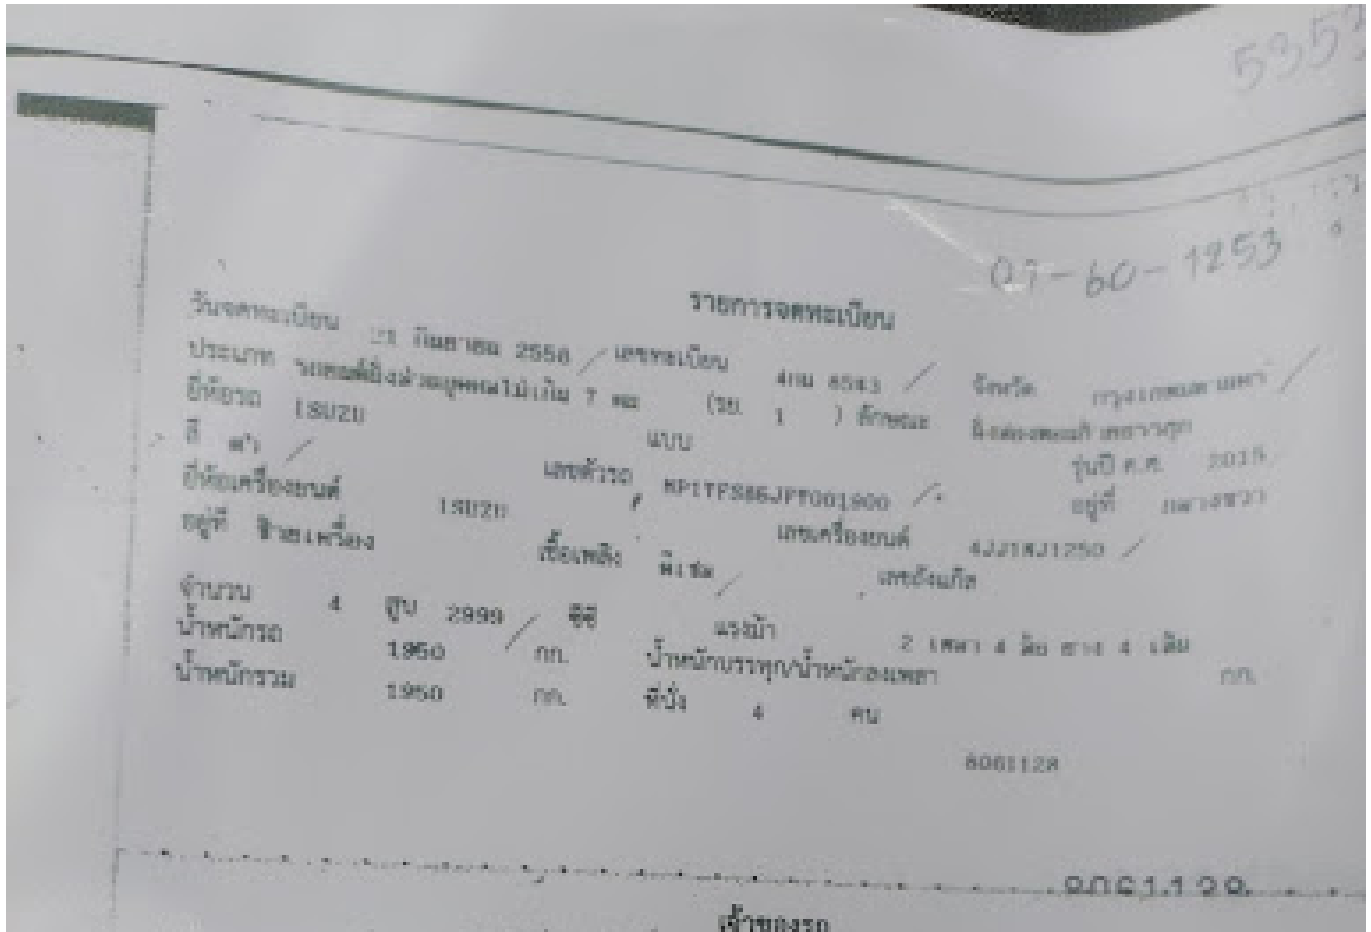 5353
07-60-1253
รายการจดทะเบียน
วันจดทะเบียน กันยายน 2558 / เลขทะเบียน 4กม 8543 / จังหวัด กรุงเทพมหานคร /
ประเภท รถยนต์นั่งส่วนบุคคลไม่เกิน 7 คน (รย. 1 ) ลักษณะ
ยี่ห้อรถ ISUZU แบบ รุ่นปี ค.ศ. 2015
สี ดำ / เลขตัวรถ อยู่ที่ กลางขวา
ยี่ห้อเครื่องยนต์ ISUZU เลขเครื่องยนต์ /
อยู่ที่ ซ้ายเครื่อง เชื้อเพลิง ดีเซล / เลขถังแก๊ส
จำนวน 4 สูบ 2999 / ซีซี แรงม้า 2 เพลา 4 ล้อ ยาง 4 เส้น
น้ำหนักรถ 1950 กก. น้ำหนักบรรทุก/น้ำหนักลงเพลา กก.
น้ำหนักรวม 1950 กก. ที่นั่ง 4 คน
8061128
เจ้าของรถ